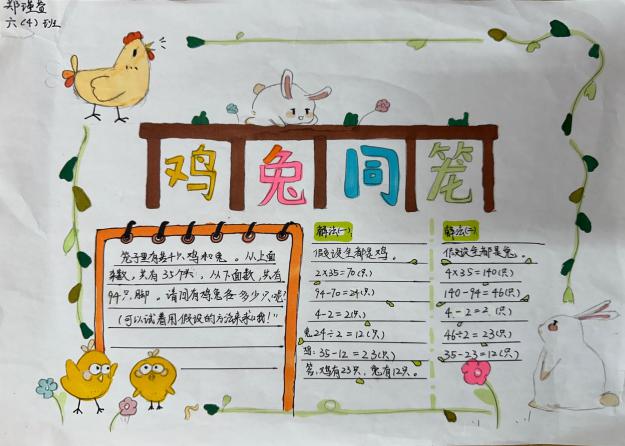 郑瑾萱
六(4)班
鸡兔同笼
笼子里有若干只鸡和兔。从上面
来数，共有35个头，从下面数，共有
94只脚。请问有鸡兔各多少只呢?
(可以试着用假设的方法来求哦!"
解法(一)
假设全都是鸡。
2×35=70(只)
94-70=24(只)
4-2=2(只)
兔24÷2=12(只)
鸡:35-12=23(只)
答:鸡有23只,兔有12只。
解法(二)
假设全都是兔。
4×35=140(只)
140-94=46(只)
4-2=2(只)
46÷2=23(只)
35-23=12(只)